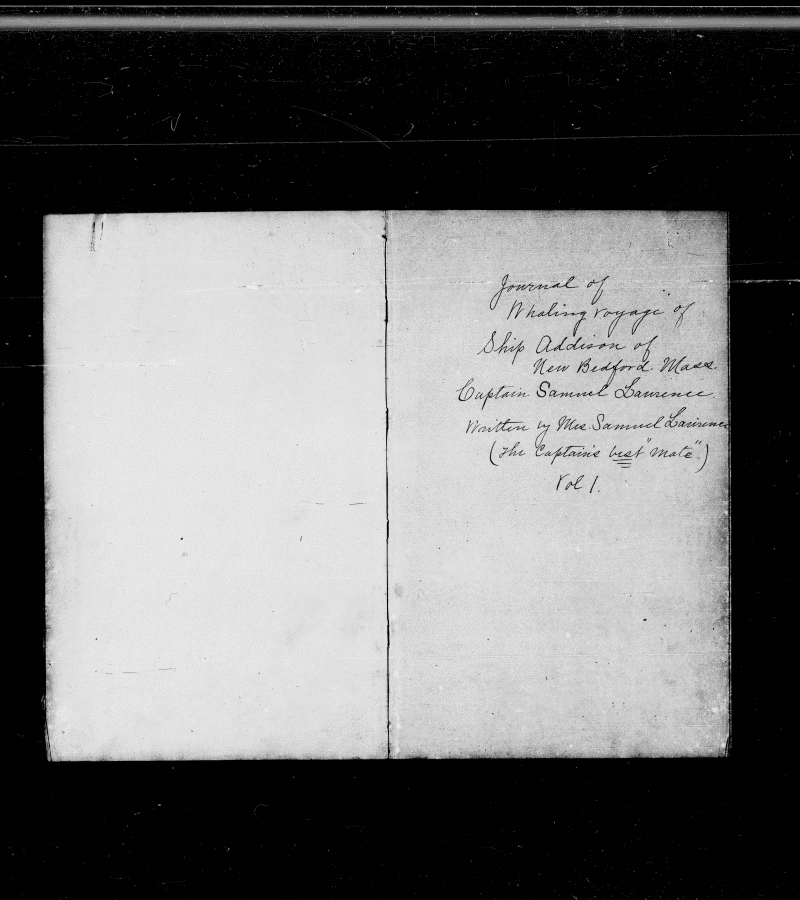 Journal of
Whaling voyage of
Ship Addison of
New Bedford. Mass.
Captain Samuel Lawrence.
Written by Mrs. Samuel Lawrence
(The Captain's best "Mate".)
Vol 1.